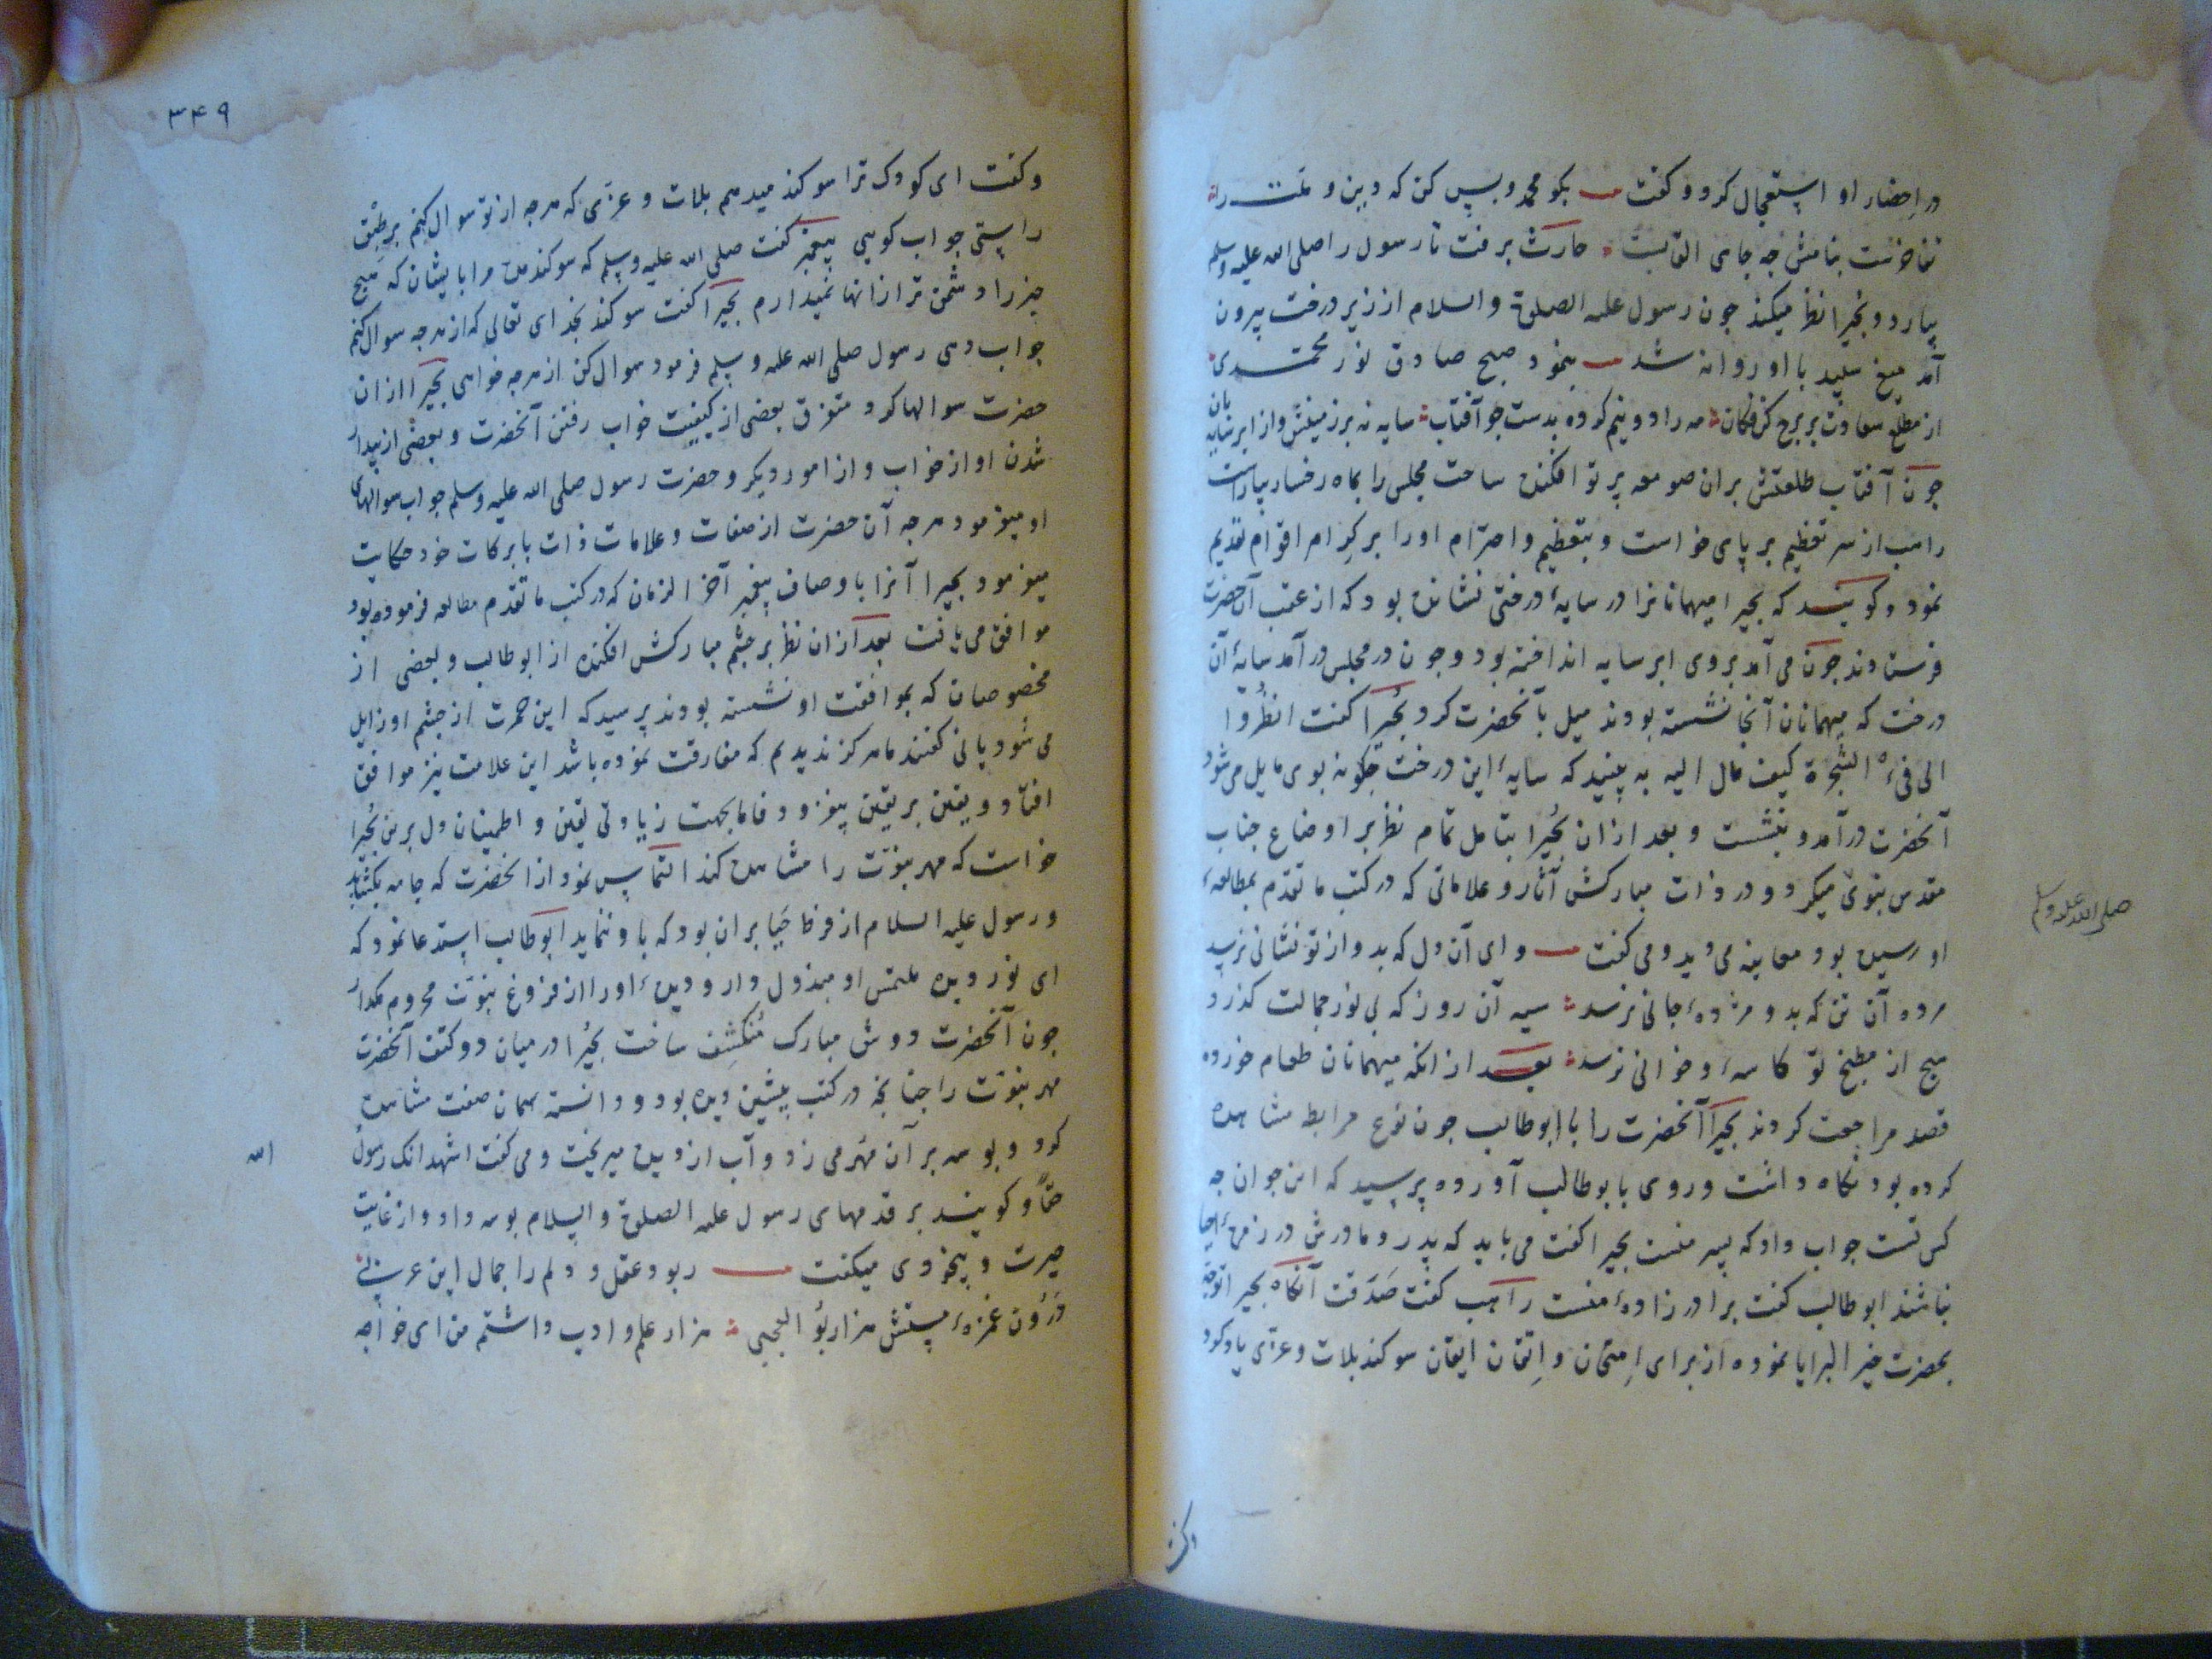 در احضار او استعجال کرد و گفت بگو محمد و بس کن که دین و ملت را
تفاخرست بنامش چه جای القابست حارث برفت تا رسول را صلی الله علیه وسلم
بیارد و بحیرا نظر میکند چون رسول علیه الصلوة والسلام از زیر درخت بیرون
آمد میغ سپید با او روانه شد بنمود صبح صادق نور محمدی
از مطلع سعادت بر برج کن فکان مه را دو نیم کرده بدست چو آفتاب سایه نه بر زمینش و از ابر سایه بان
چون آفتاب طلعتش بران صومعه پرتو افکنده ساحت مجلس را بماه رخسار بیاراست
راهب از سر تعظیم بر پای خواست و بتعظیم و احترام او را بر کرام اقوام تقدیم
نمود و کویند که بحیرا میهمانانرا در سایهٔ درختی نشانده بود که از عقب آن حضرت
فرستادند چون می آمد بروی ابر سایه انداخته بود و چون در مجلس در آمد سایهٔ آن
درخت که میهمانان آنجا نشسته بودند میل بآنحضرت کرد بحیرا گفت انظروا
الی فیء الشجرة کیف مال الیه به بینید که سایهٔ این درخت چکونه بوی مایل می شود
آنحضرت درآمد و بنشست و بعد ازان بحیرا بتامل تمام نظر بر اوضاع جناب
مقدس نبوی میکرد و در ذات مبارکش آثار و علاماتی که در کتب ما تقدم بمطالعهٔ
صلی الله علیه وسلم
او رسیده بود معاینه می دید و می گفت وای آن دل که بدو از تو نشانی نرسد
مرده آن تن که بدو مژدهٔ جانی نرسد سیه آن روز که بی نور جمالت گذرد
هیچ از مطبخ تو کاسهٔ و خوانی نرسد بعد از انکه میهمانان طعام خورده
قصد مراجعت کردند بحیرا آنحضرت را با ابوطالب چون نوع مرابطه مشاهده
کرده بود نکاه داشت و روی بابوطالب آورده پرسید که این جوان چه
کس تست جواب داد که پسر منست بحیرا گفت می باید که پدر و مادرش در زمرهٔ احیا
نباشند ابوطالب گفت برادر زادهٔ منست راهب گفت صدقت آنکاه بحیرا توجه
بحضرت خیر البرایا نموده از برای امتحان و اتقان ایقان سوکند بلات و عزی یاد کرد
وگفت
۳۴۹
و گفت ای کودک ترا سوکند میدهم بلات و عزی که هرچه از تو سوال کنم بر طبق
راستی جواب کویی پیغمبر گفت صلی الله علیه وسلم که سوکند مده مرا بایشان که هیچ
چیز را دشمن تر ازانها نمیدارم بحیرا گفت سوکند بخدای تعالی که از هرچه سوال کنم
جواب دهی رسول صلی الله علیه وسلم فرمود سوال کن از هرچه خواهی بحیرا ازان
حضرت سوالها کرد متفرق بعضی از کیفیت خواب رفتن آنحضرت و بعضی از بیدار
شدن او از خواب و از امور دیکر و حضرت رسول صلی الله علیه وسلم جواب سوالهای
او میفرمود هرچه آن حضرت از صفات و علامات ذات بابرکات خود حکایت
میفرمود بحیرا آنرا باوصاف پیغمبر آخر الزمان که در کتب ما تقدم مطالعه فرموده بود
موافق می یافت بعد ازان نظر بر چشم مبارکش افکنده از ابوطالب و بعضی از
مخصوصان که بموافقت او نشسته بودند پرسید که این حمرت از چشم او زایل
می شود یا نی گفتند ما هرکز ندیدیم که مفارقت نموده باشد این علامت نیز موافق
افتاد و یقین بر یقین بیفزود فاما بجهت زیادتی یقین و اطمینان دل برین بحیرا
خواست که مهر نبوت را مشاهده کند التماس نمود از آنحضرت که جامه بکشاید
و رسول علیه السلام از فرط حیا بران بود که باو ننماید ابوطالب استدعا نمود که
ای نور دیده ملتمس او مبذول دار و دیدهٔ او را از فروغ نبوت محروم مکدار
چون آنحضرت دوش مبارک منکشف ساخت بحیرا در میان دو کتف آنحضرت
مهر نبوت را چنانچه در کتب پیشین دیده بود و دانسته بهمان صفت مشاهده
کرد و بوسه بر آن مهر می زد و آب از دیده میریخت و می گفت اشهد انک رسول
الله
حقا و کویند بر قدمهای رسول علیه الصلوة والسلام بوسه داد و از غایت
حیرت و بیخودی میکفت ربود عقل و دلم را جمال این عربی
درون غمزهٔ مستش هزار بو العجبی هزار علم و ادب داشتم من ای خواجه